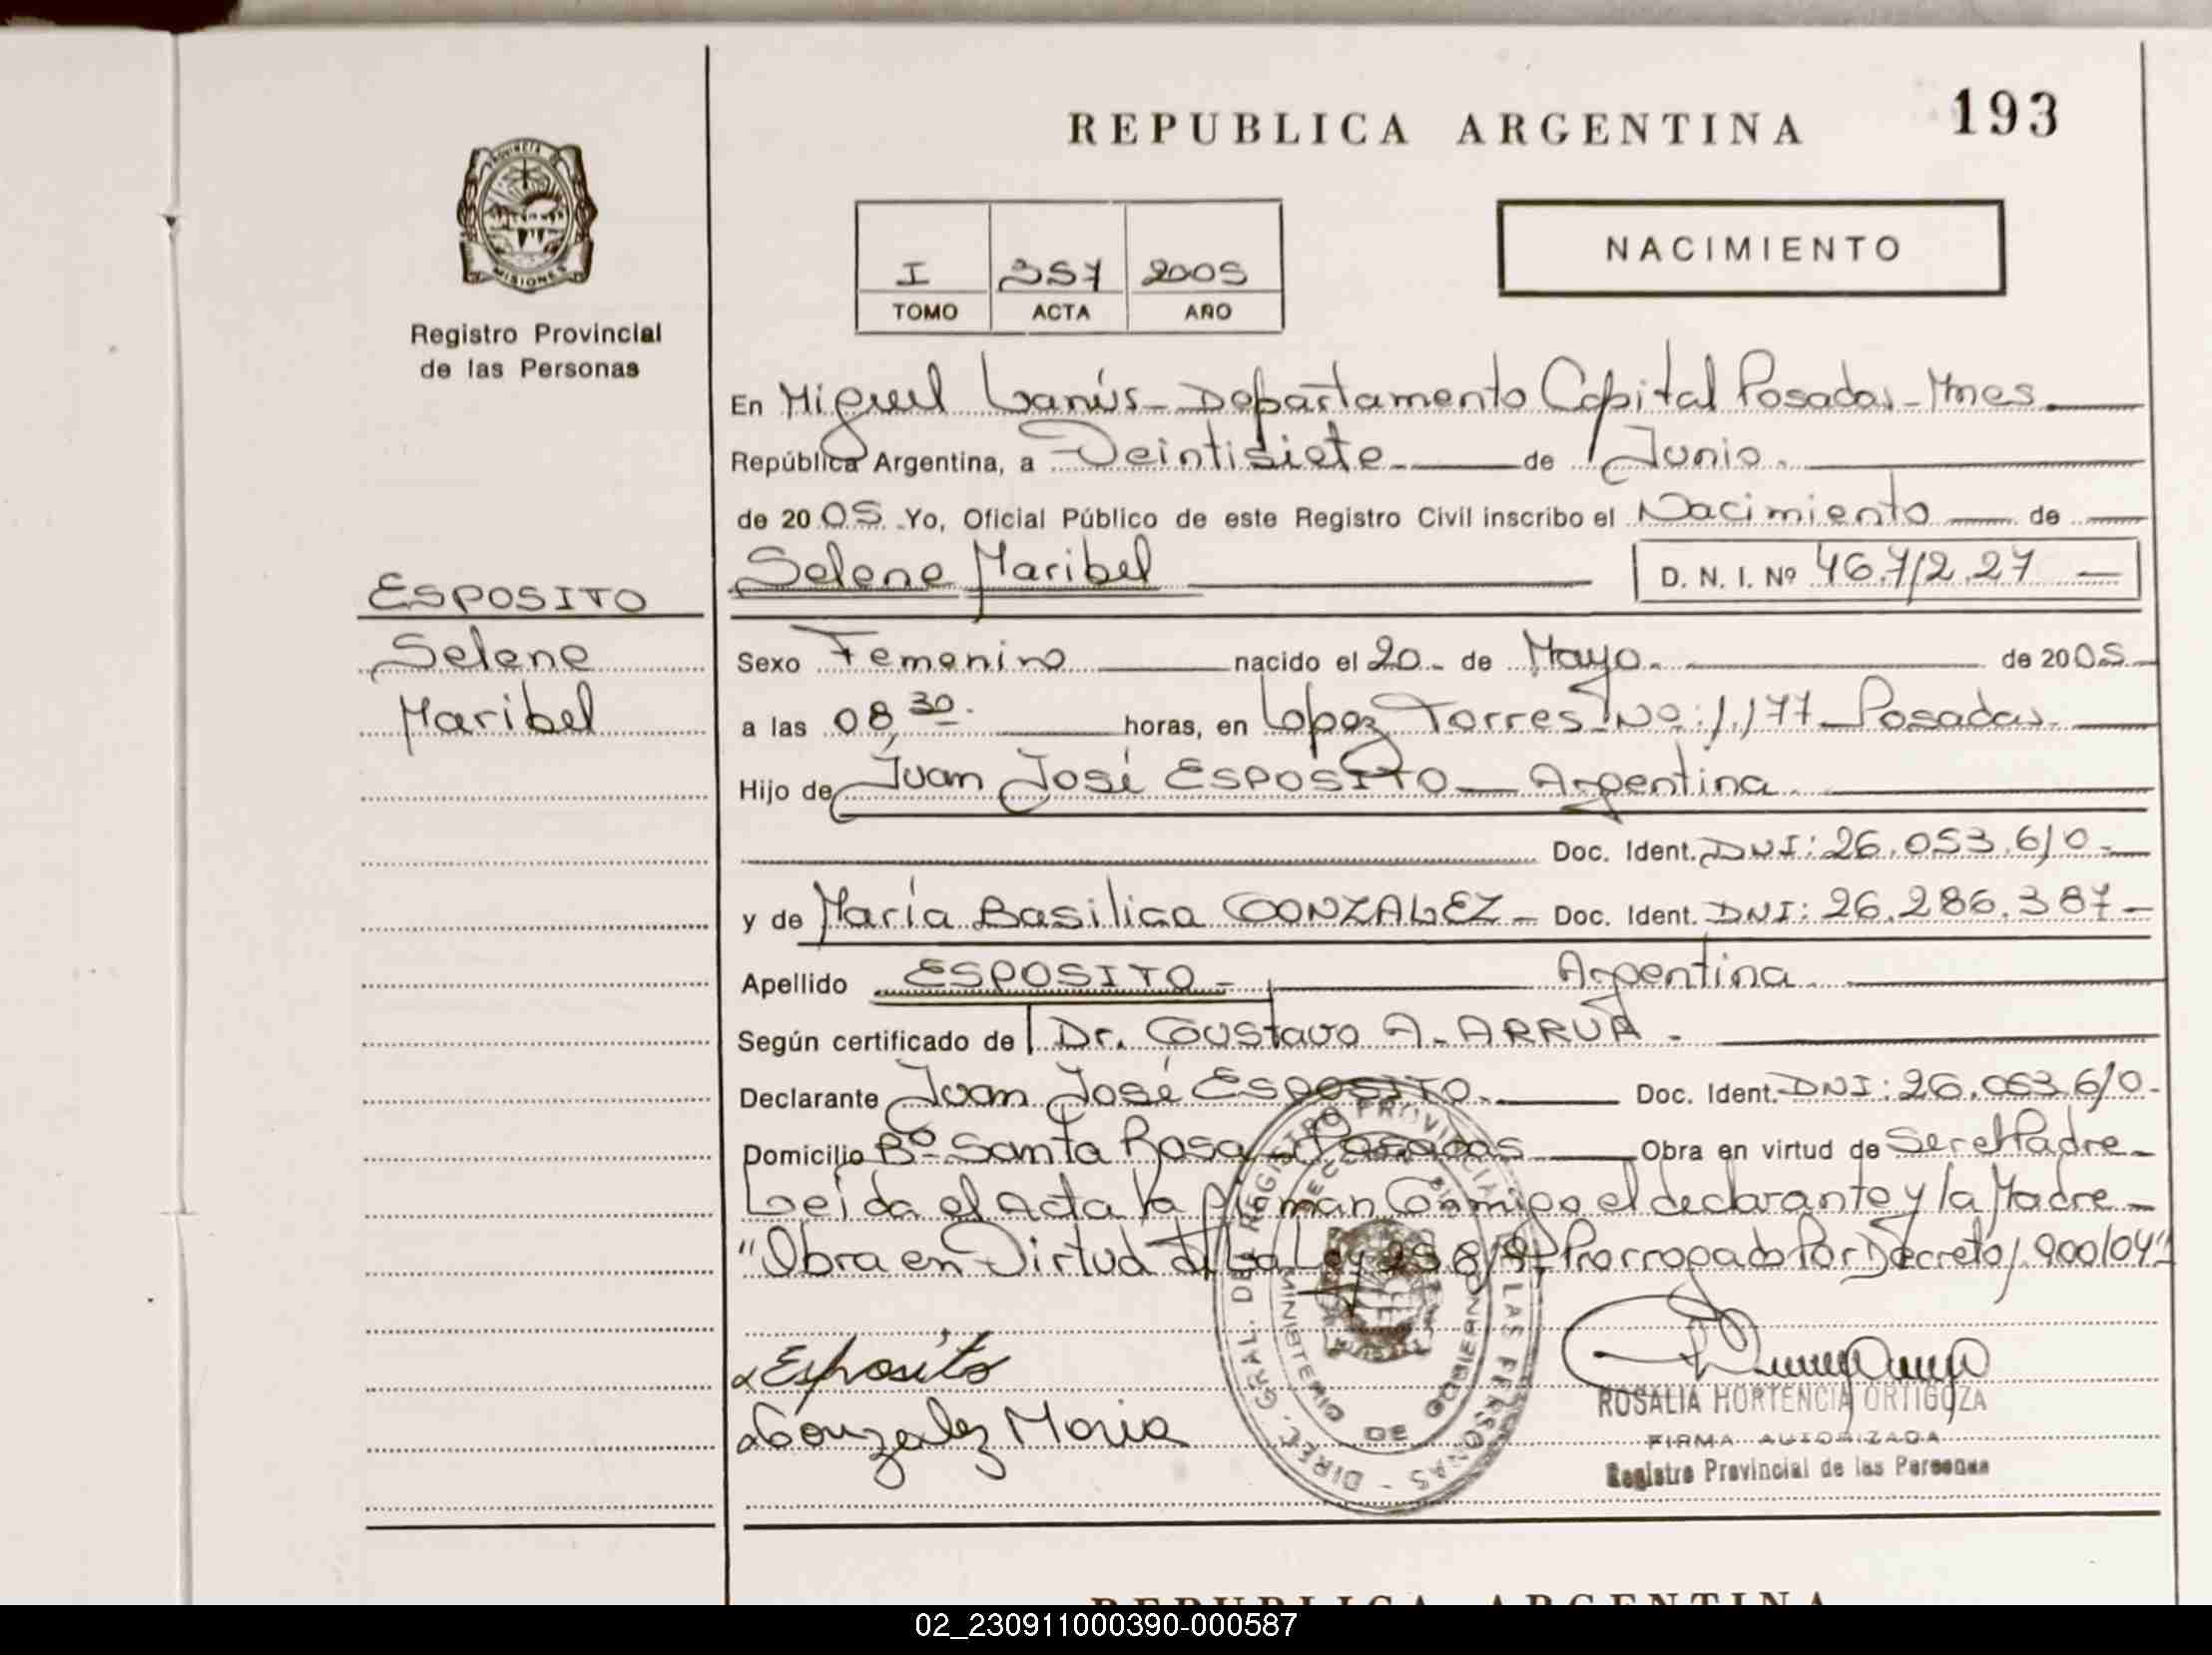 REPUBLICA ARGENTINA
193
PROVINCIA DE
MISIONES
Registro Provincial
de las Personas
I 357 2005
TOMO ACTA AÑO
NACIMIENTO
En Miguel Lanús - Departamento Capital Posadas - Mnes
República Argentina, a Veintisiete de Junio.
de 2005 Yo, Oficial Público de este Registro Civil inscribo el Nacimiento de
Selene Maribel D. N. I. Nº 46.712.27
ESPOSITO
Selene
Maribel
Sexo Femenino nacido el 20 - de Mayo. de 2005
a las 08 30. horas, en Lopez Torres Nº: 1.177 - Posadas.
Hijo de Juan José ESPOSITO - Argentina.
Doc. Ident. DNI: 26.053.610 -
y de María Basilica GONZALEZ - Doc. Ident. DNI: 26.286.387 -
Apellido ESPOSITO - Argentina.
Según certificado de Dr. Gustavo A. ARRUA -
Declarante Juan José ESPOSITO. Doc. Ident. DNI: 26.053.610 -
Domicilio Bº Santa Rosa - Posadas Obra en virtud de Ser el Padre -
Leída el Acta la firman Conmigo el declarante y la Madre -
"Obra en Virtud de La Ley 25.819 - Prorrogado Por Decreto 1.900/04"
Esposito
Gonzalez Maria
DIREC. GRAL. DE REGISTRO PROVINCIAL DE LAS PERSONAS -
MINISTERIO DE GOBIERNO
ROSALIA HORTENCIA ORTIGOZA
FIRMA AUTORIZADA
Registro Provincial de las Personas
REPUBLICA ARGENTINA
02_230911000390-000587